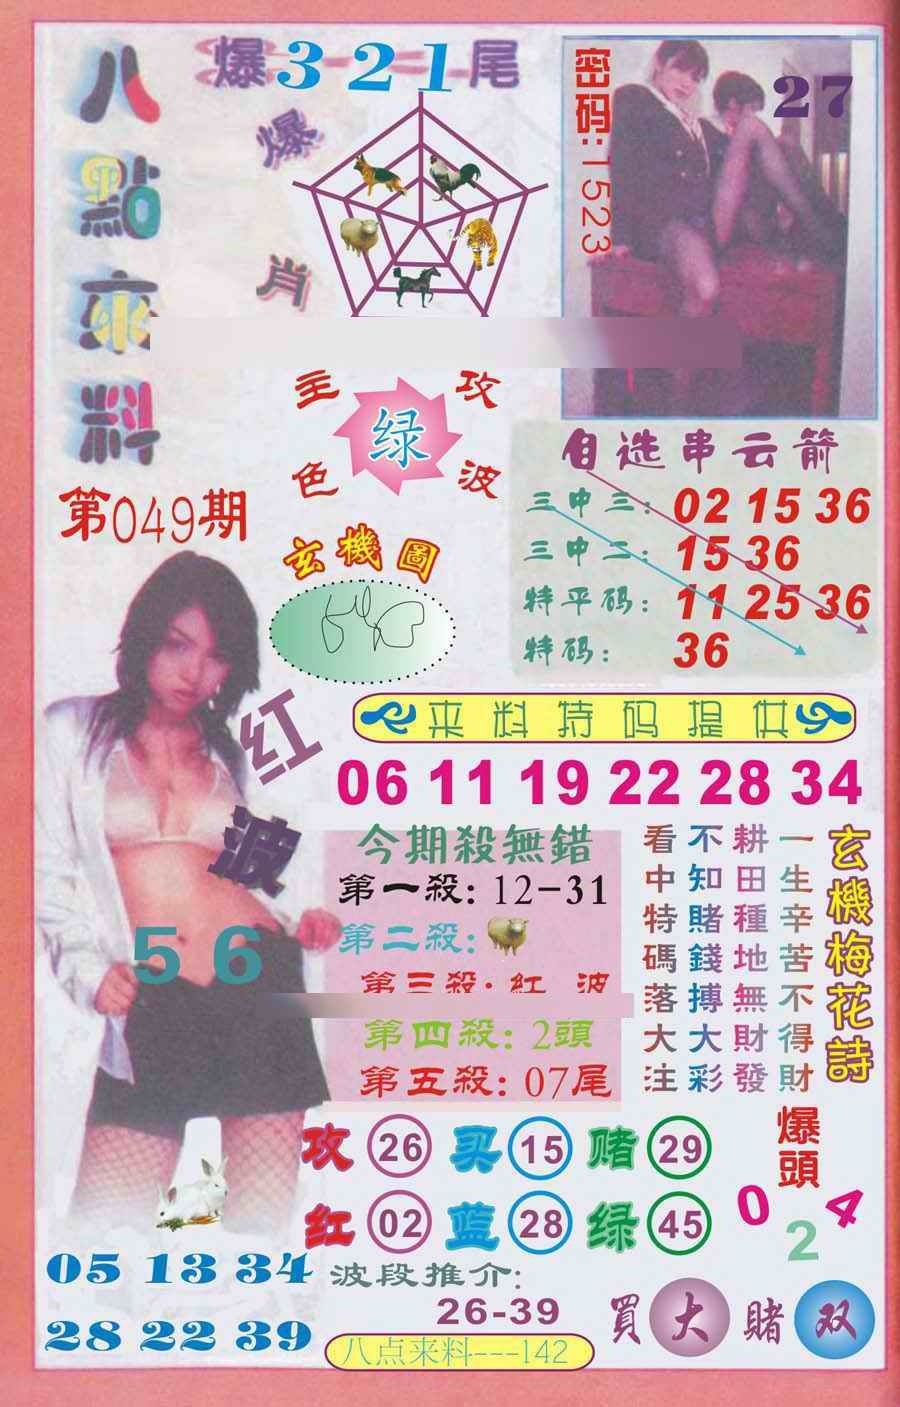 八點來料
爆321尾
爆肖
密码:1523
27
主攻
绿
色波
第049期
玄機圖
自选串云箭
三中三: 02 15 36
三中二: 15 36
特平码: 11 25 36
特码: 36
红波
56
来料特码提供
06 11 19 22 28 34
今期殺無錯
第一殺: 12-31
第二殺:
第三殺: 紅 波
第四殺: 2頭
第五殺: 07尾
玄機梅花詩
一生辛苦不得財
耕田種地無財發
不知賭錢搏大彩
看中特碼落大注
攻 26 买 15 赌 29
红 02 蓝 28 绿 45
爆頭
0 2 4
05 13 34
28 22 39
波段推介:
26-39
買大賭双
八点来料---142